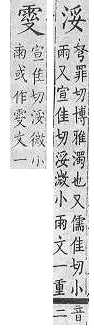 浽
弩罪切博雅濁也又儒佳切小
雨又宣佳切浽溦小雨文一重
音
二
宣佳切浽微小
雨或作文一